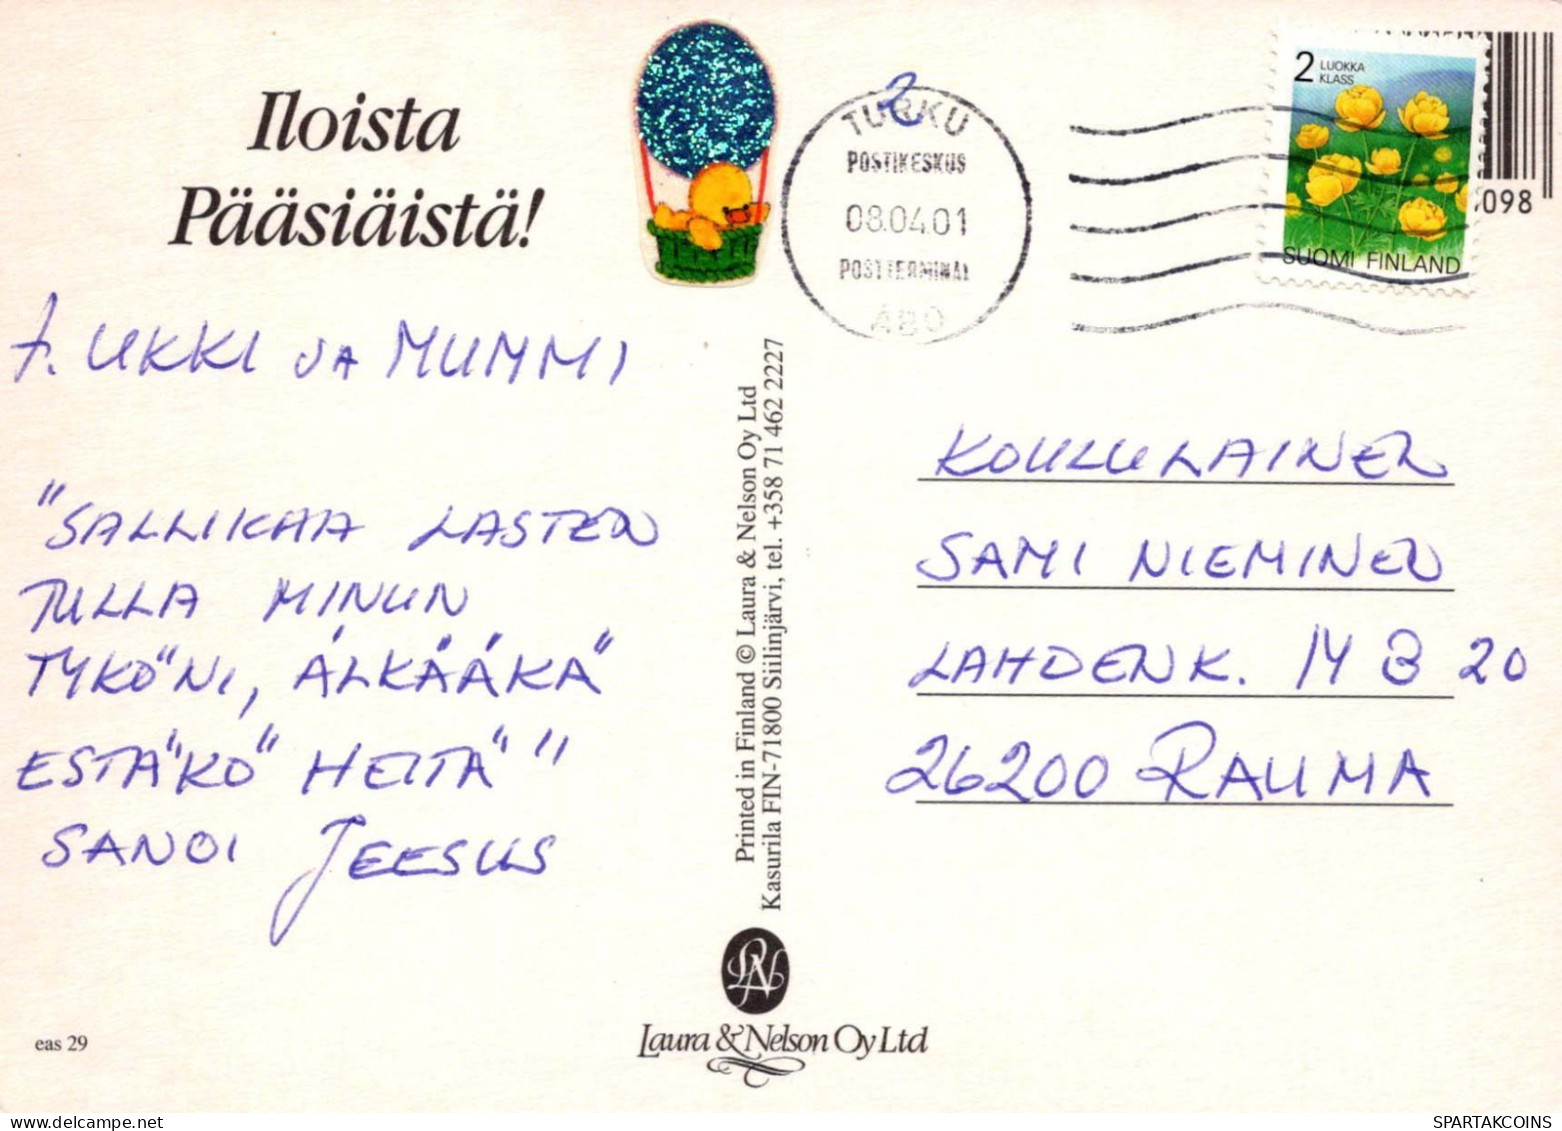 Iloista
Pääsiäistä!
T. UKKI JA MUMMI
"SALLIKAA LASTEN
TULLA MINUN
TYKÖNI, ÄLKÄÄKÄ
ESTÄKÖ HEITÄ"
SANOI JEESUS
eas 29
Printed in Finland © Laura & Nelson Oy Ltd
Kasurila FIN-71800 Siilinjärvi, tel. +358 71 462 2227
LN
Laura & Nelson Oy Ltd
2
TURKU
POSTIKESKUS
08.04.01
POSTTERMINAL
ÅBO
2 LUOKKA
KLASS
SUOMI FINLAND
098
KOULULAINEN
SAMI NIEMINEN
LAHDENK. 14 B 20
26200 RAUMA
SPARTAKCOINS